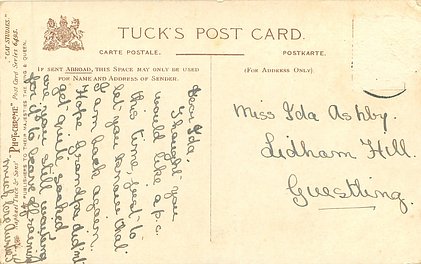 TUCK'S POST CARD.
CARTE POSTALE.
POSTKARTE.
IF SENT ABROAD, THIS SPACE MAY ONLY BE USED
FOR NAME AND ADDRESS OF SENDER.
(FOR ADDRESS ONLY)
Dear Ida,
I thought you
would like a p.c
this time, just to
let you that
I am back again.
Hope Grandpa didn't
get quite soaked
are you still waiting
for it to leave off raining
Miss Ida Ashby.
Lidham Hill.
Guestling.
"CAT STUDIES."
"PHOTOCHROME" Post Card Series
Raphael Tuck & Sons'
PUBLISHERS TO THEIR MAJESTIES THE KING & QUEEN.